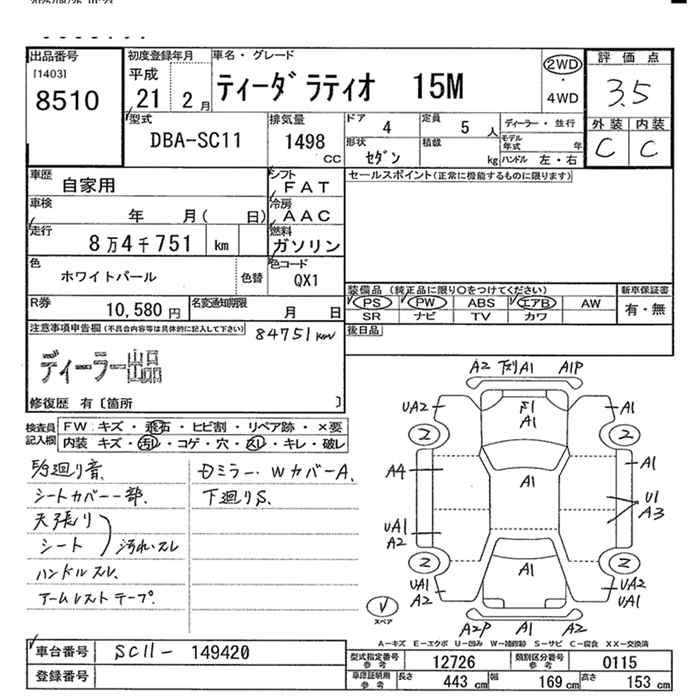 出品番号
[1403]
8510
初度登録年月
平成
21 2月
車名・グレード
ティーダ ラティオ 15M
2WD
・
4WD
評価点
3.5
外装 内装
C C
型式
DBA-SC11
排気量
1498
CC
ドア 4
定員 5 人
形状 セダン
積載 kg
ディーラー・並行
モデル年式 年
ハンドル 左・右
車歴
自家用
シフト
FAT
車検
年 月( 日)
冷房
AAC
走行
8万4千751 km
燃料
ガソリン
色
ホワイトパール
色替
色コード
QX1
R券
10,580円
名変通知期限
月 日
セールスポイント(正常に機能するものに限ります)
装備品 (純正品に限り○をつけてください)
PS PW ABS エアB AW
SR ナビ TV カワ
新車保証書
有・無
後日品
注意事項申告欄(不具合内容等は具体的に記入して下さい)
84751km
ディーラー出品
修復歴 有〔箇所 〕
検査員記入欄
FW:キズ・飛石・ヒビ割・リペア跡・×要
内装 キズ・汚れ・コゲ・穴・スレ・キレ・破レ
シートカバー一部.
天張り
シート
汚れ、スレ
ハンドルスレ.
アームレストテープ.
Dミラー・WカバーA.
下廻りS.
A2 下廻りA1 A1P
UA2 F1 A1 A1
2 2
A1
A4 A1 U1
A3
UA1
A2
2 2
UA1 A1 UA2
A2 UA1
A2P A1 A2
スペア
A-キズ E-エクボ U-凹み W-補修跡 S-サビ C-腐食 XX-交換済
車台番号 SC11- 149420
登録番号
型式指定番号 参考 12726
類別区分番号 参考 0115
車庫証明用 参考
長さ 443 cm 幅 169 cm 高さ 153 cm